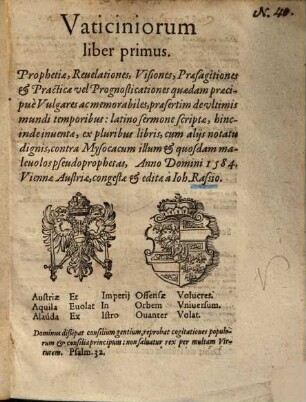 N. 40.
Vaticiniorum
liber primus.
Prophetiæ, Reuelationes, Visiones, Præsagitiones
& Practicæ vel Prognosticationes quædam præci-
puè Vulgares ac memorabiles, præsertim de vltimis
mundi temporibus: latino sermone scriptæ, hinc
inde inuentæ, ex pluribus libris, cum alijs notatu
dignis, contra Mysocacum illum & quosdam ma-
leuolos pseudoprophetas, Anno Domini 1584.
Viennæ Austriæ, congestæ & editæ à Ioh. Rassio.
Austriæ Et Imperij Offensæ Volucres.
Aquila Euolat In Orbem Vniuersum.
Alauda Ex Istro Ouanter Volat.
Dominus dissipat consilium gentium, reprobat cogitationes populo-
rum & consilia principum: non saluatur rex per multam Vir-
tutem. Psalm. 32.